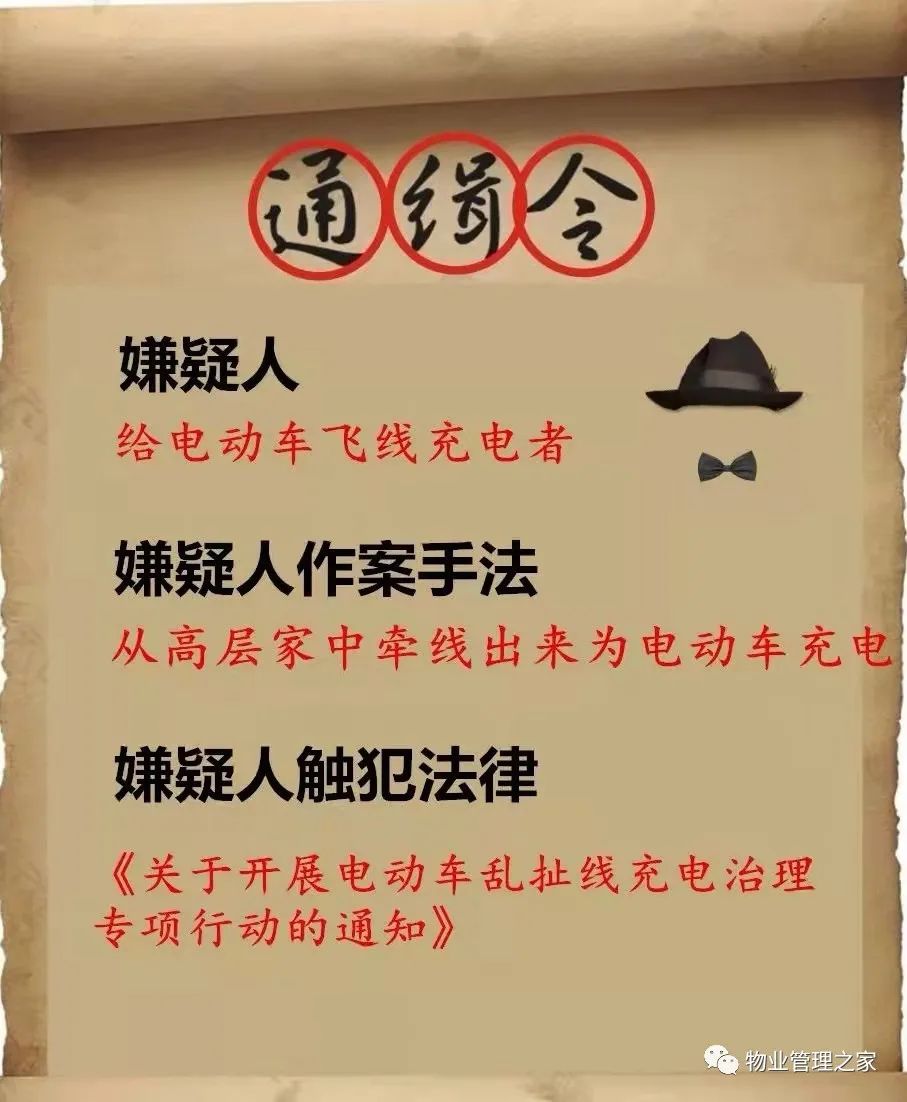 通缉令
嫌疑人
给电动车飞线充电者
嫌疑人作案手法
从高层家中牵线出来为电动车充电
嫌疑人触犯法律
《关于开展电动车乱扯线充电治理
专项行动的通知》
物业管理之家